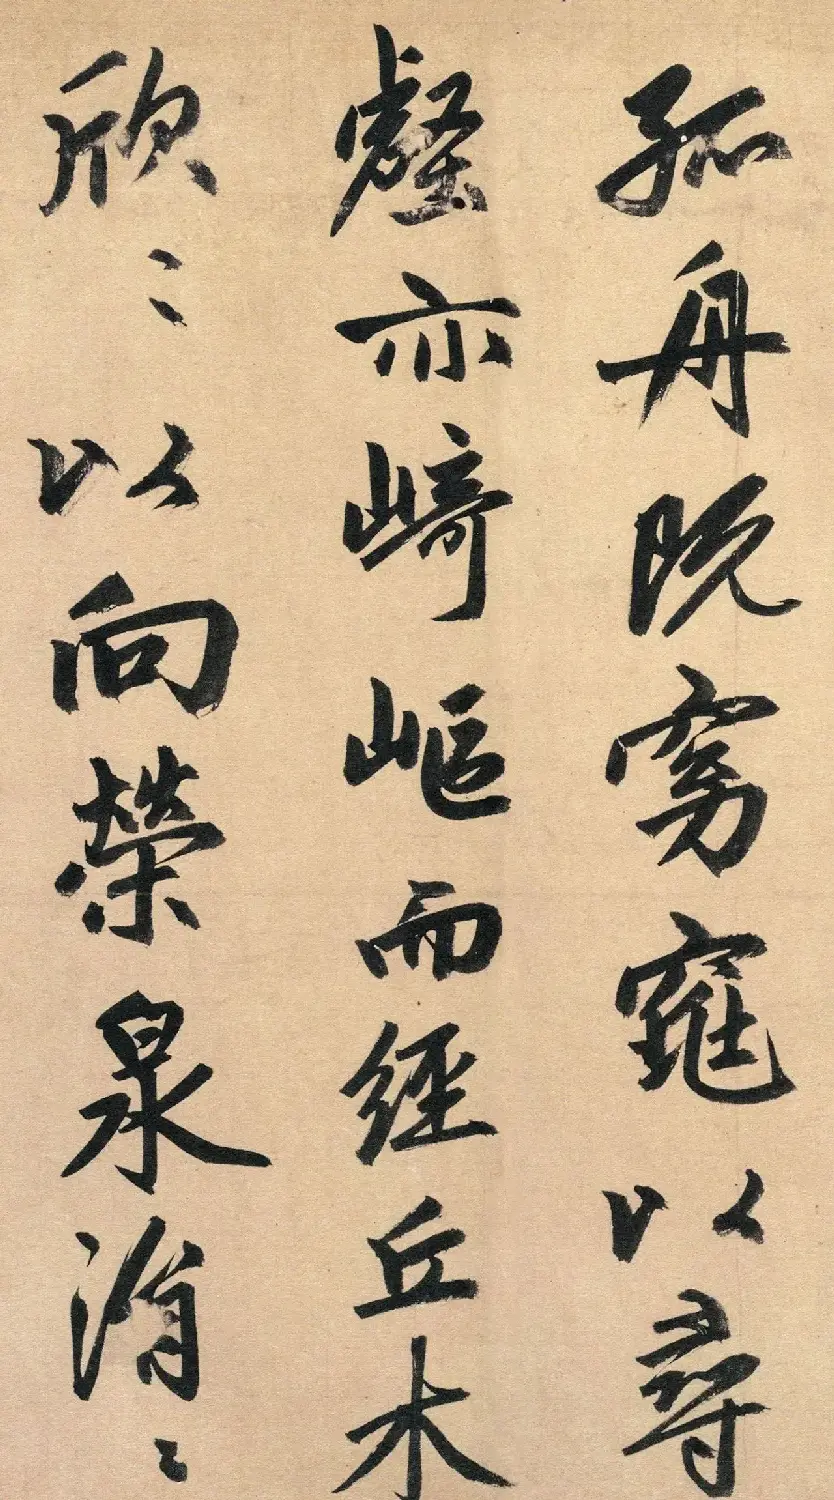 孤舟既窈窕以尋
壑亦崎嶇而經丘木
欣〻以向榮泉涓〻